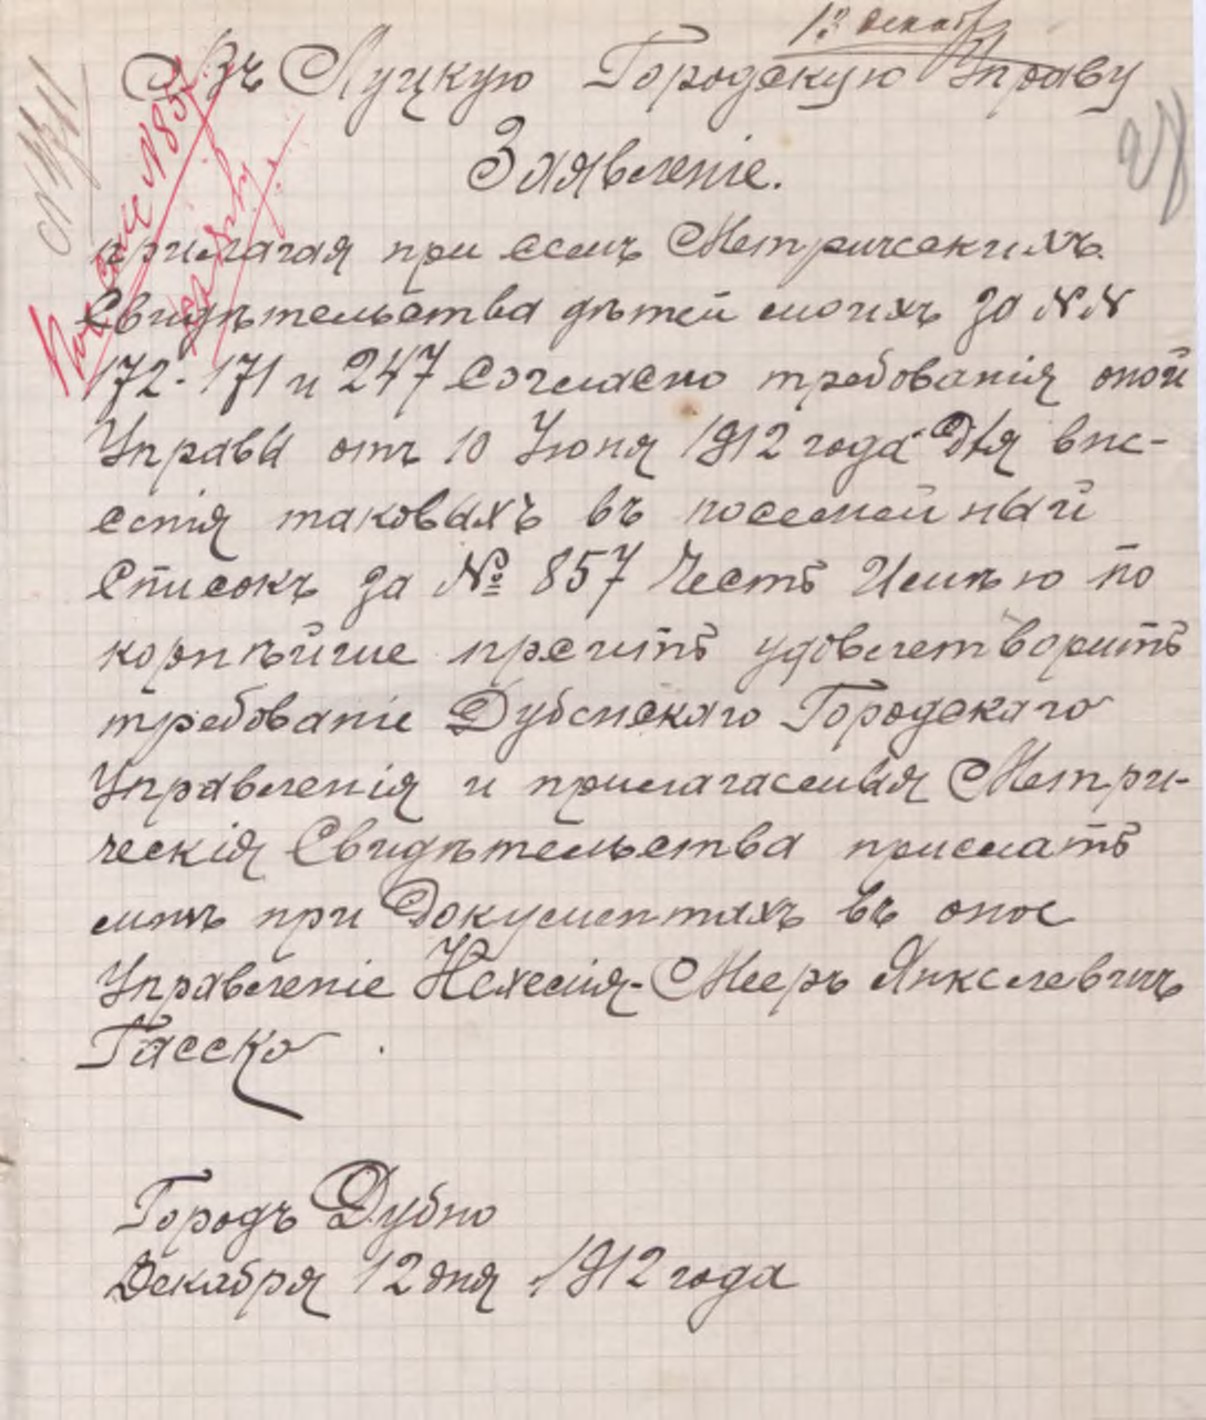 Въ Луцкую Городскую Управу
Заявленіе.
прилагая при семъ Метрическихъ
Свидѣтельства дѣтей моихъ за NN
172. 171 и 247 Согласно требованія оной
Управы отъ 10 Іюня 1912 года Для вне-
сенія таковыхъ въ посемейный
Списокъ за № 857 Честь Имѣю по
корнѣйше просить удовлетворить
требованіе Дубенскаго Городскаго
Управленія и прилагаемыя Метри-
ческія Свидѣтельства прислать
мнѣ при Документахъ въ оное
Управленіе Нехемія-Мееръ Янкелевичъ
Гасско
Городъ Дубно
Декабря 12 дня 1912 года